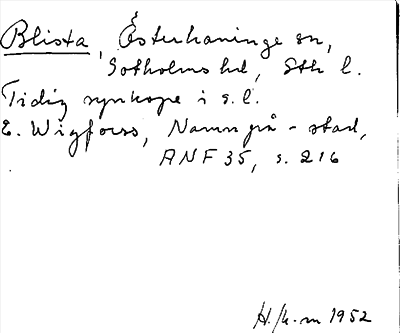 Blista, Österhaninge sn,
Sotholms hd, Sth l.
Tidig synkope i s.l.
E. Wigforss, Namn på -stad,
ANF 35, s. 216
1952